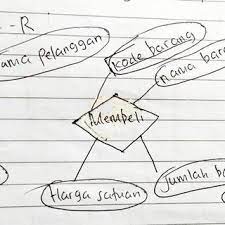 -- R
ama pelanggan
kode barang
nama bara
Membeli
Harga satuan
Jumlah ba